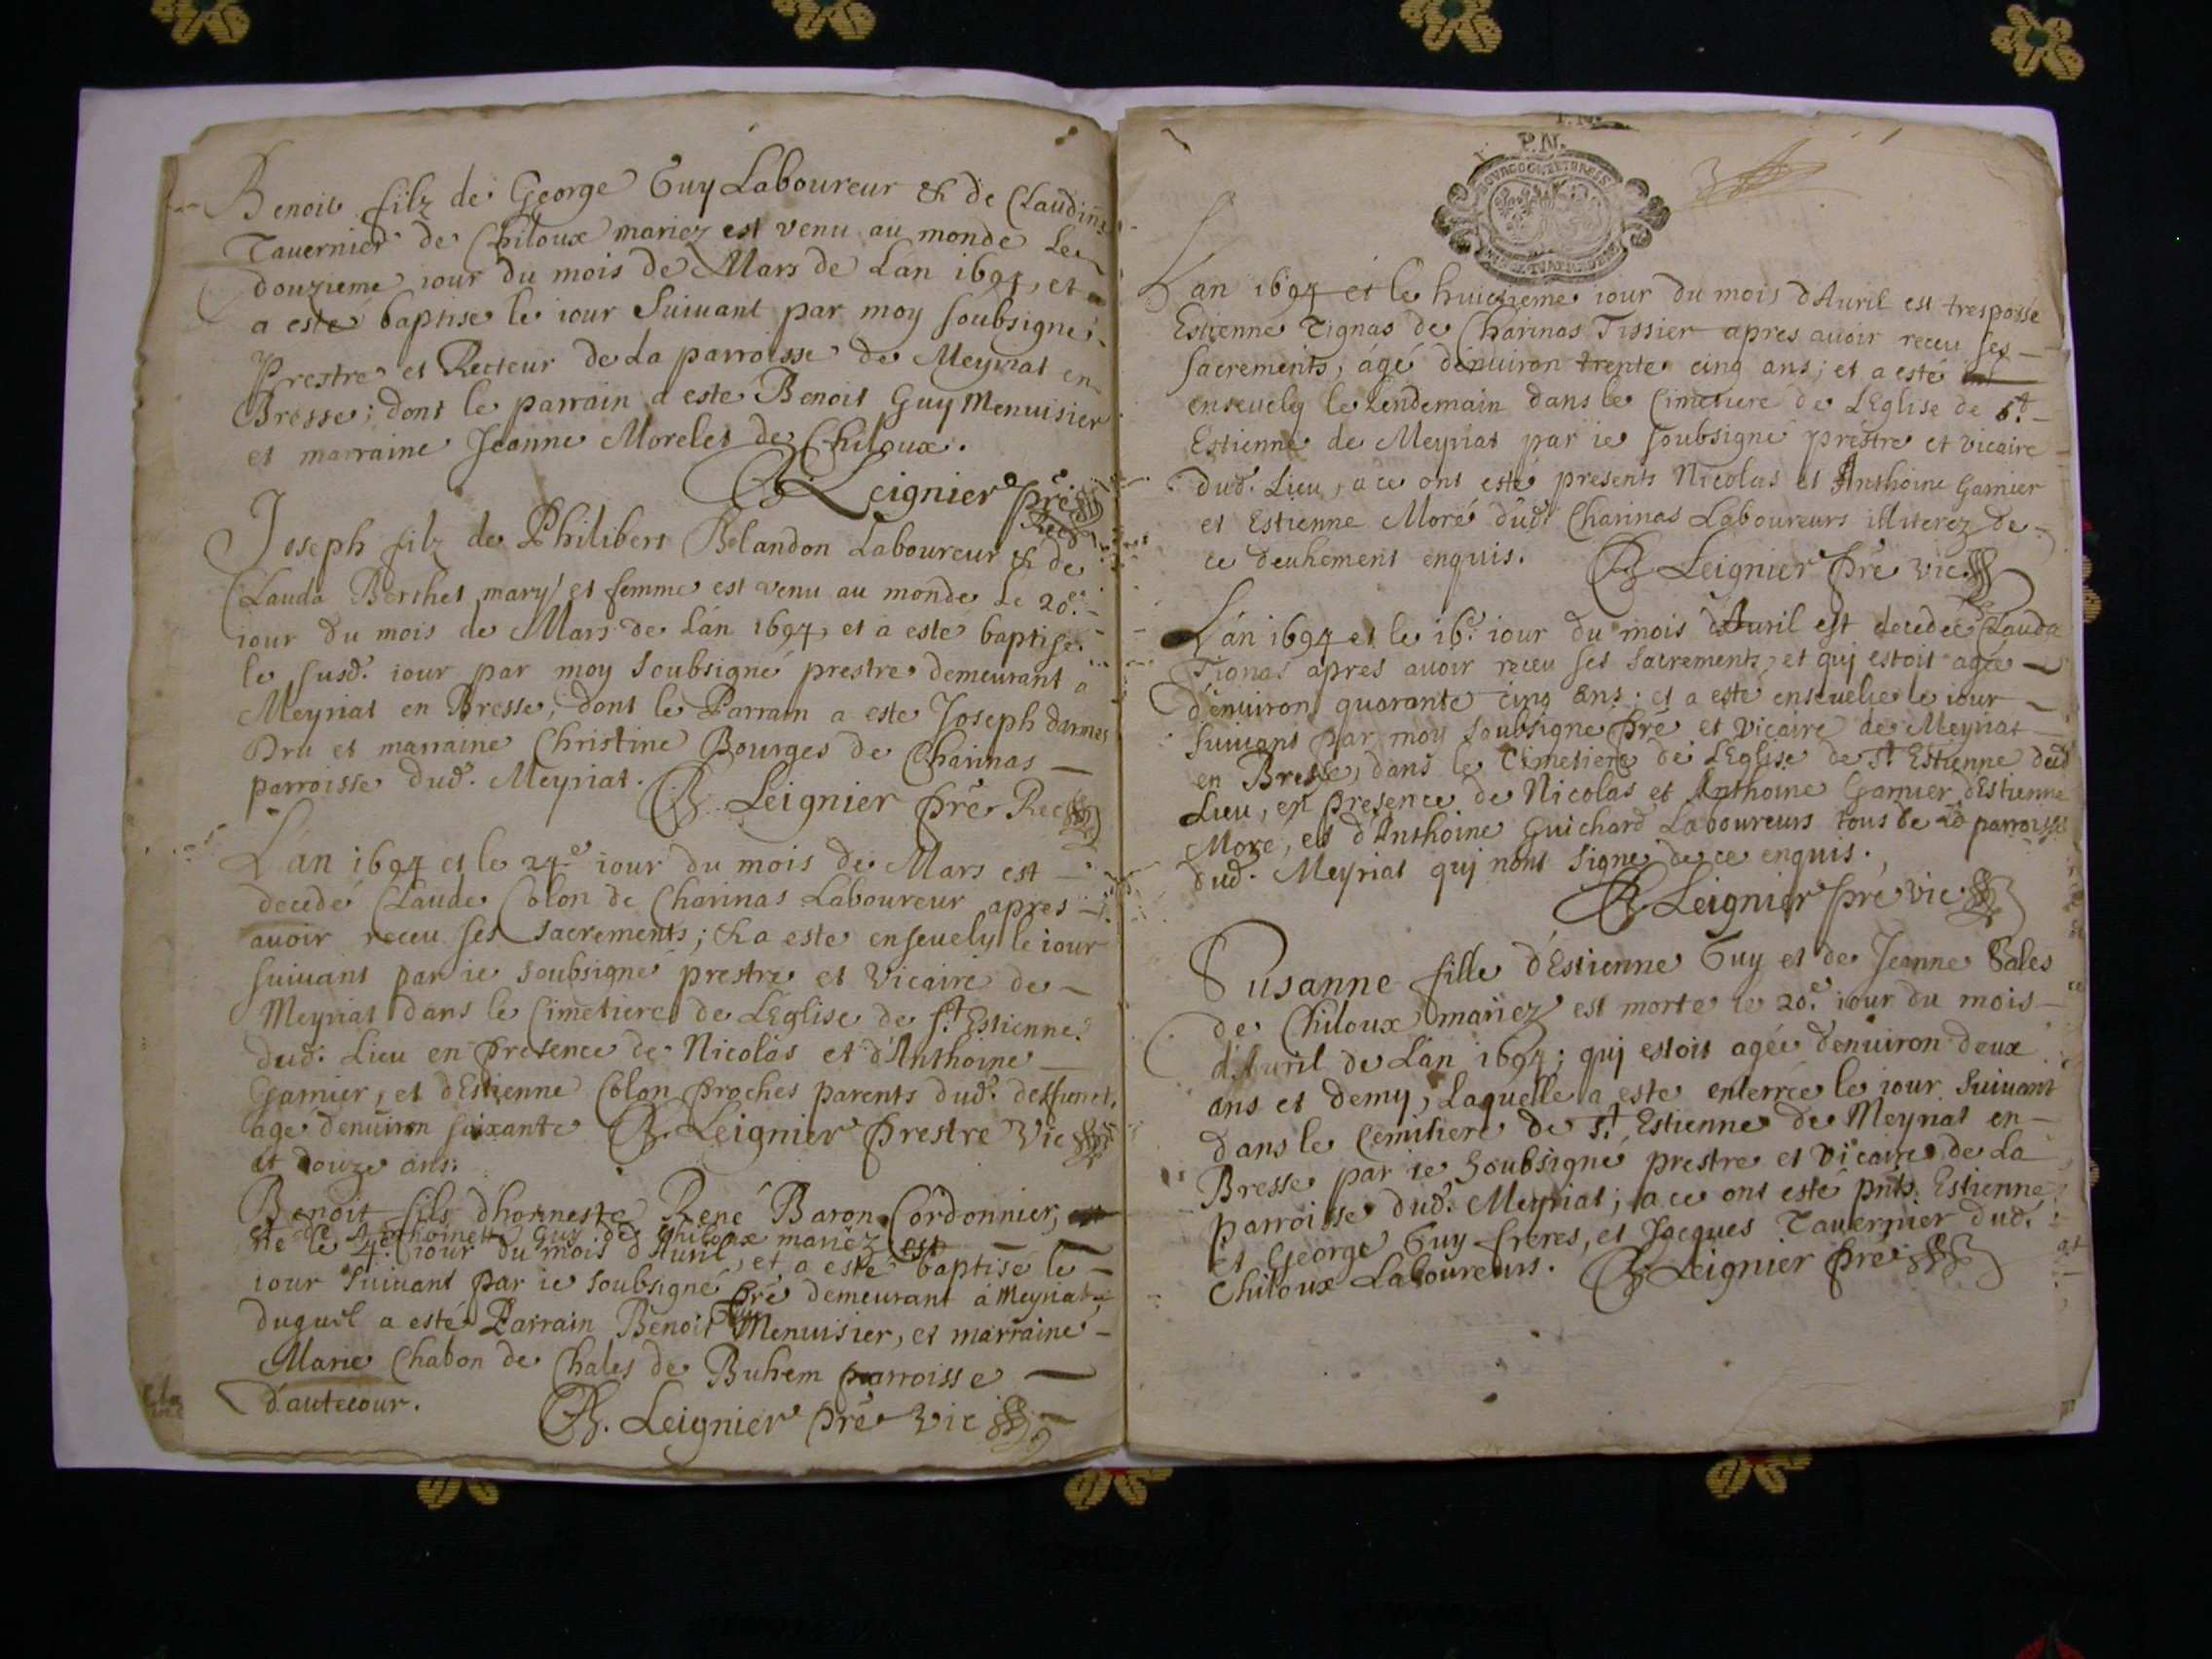 Benoit filz de George Guy Laboureur & de Claudine
Tauernier de Chiloux mariez est venu au monde Le
douzieme iour du mois de Mars de Lán 1694, et
a esté baptise le iour Suiuant par moy soubsigné
Prestre et Recteur de La parroisse de Meyriat en
Bresse; dont le parrain a esté Benoit Guy Menuisier
et marraine Jeanne Morelet de Chiloux.
B. Leignier prê
Rect
Joseph filz de Philibert Blandon Laboureur & de
Clauda Berthet mary et femme est venu au monde Le 20.e
iour du mois de Mars de Lán 1694, et a esté baptise
le susd. iour par moy soubsigné prestre demeurant a
Meyriat en Bresse; dont le Parrain a este Joseph
Dru et marraine Christine Bourges de Charinas
parroisse dud. Meyriat.
B. Leignier prê Rec
Lán 1694 et le 24.e iour du mois de Mars est
decedé Claude Colon de Charinas Laboureur apres
auoir receu ses Sacrements; & a este enseuely le iour
suiuant par ie soubsigné prestre et Vicaire de
Meyriat dans le Cimetiere de LÉglise de St Estienne
dud. Lieu en presence de Nicolas et d'Anthoine
Garnier, et dEstienne Colon proches parents dud. deffunct,
age denuiron soixante B. Leignier prestre Vic
et douze ans.
Benoit fils dhonneste René Baron Cordonnier,
et de Anthoinette Guy de Chiloux mariez est
né le 4.e iour du mois d'Auril, et a esté baptisé le
iour Suiuant par ie soubsigné prê demeurant á Meyriat
duquel a esté Parrain Benoit Guy Menuisier, et marraine
Marie Chabon de Chales de Buhem parroisse
d'autecour.
B. Leignier prê vic
P.N.
BOVRGOGNE ET BRESSE
Lán 1694 et le huictieme iour du mois dAuril est trespassé
Estienne Tignas de Charinas Tissier apres auoir receu ses
Sacrements, ágé dénuiron trente cinq ans; et a esté
enseuely le Lendemain dans le Cimetiere de LEglise de St
Estienne de Meyriat par ie soubsigné prestre et vicaire
dud. Lieu, a ce ont esté presents Nicolas et Anthoine Garnier
et Estienne Moré dud. Charinas Laboureurs illiterez de
ce deuhement enquis. B. Leignier prê vic
Lán 1694 et le 16.e iour du mois dAuril est decedée Clauda
Tignas apres auoir receu ses Sacrements, et qui estoit agée
d'enuiron quarante cinq ans; et a esté enseuelie le iour
suiuant par moy soubsigné prê et Vicaire de Meyriat
en Bresse, dans le Cimetiere de LEglise de St Estienne dud
Lieu, en presence de Nicolas et Anthoine Garnier, dEstienne
Moré, et d'Anthoine Guichard Laboureurs tous de parroisse
dud. Meyriat qui nont signé de ce enquis.
B. Leignier prê vic
Susanne fille d'Estienne Guy et de Jeanne Sales
de Chiloux mariez est morte le 20.e iour du mois
d'Auril de Lán 1694; qui estoit agée denuiron deux
ans et demy, Laquelle a este enterrée le iour Suiuant
dans le Cemitiere de St Estienne de Meyriat en
Bresse par ie Soubsigné prestre et Vicaire de La
parroisse dud. Meyriat; a ce ont esté pnts. Estienne
et George Guy freres, et Jacques Tauernier dud.
Chiloux Laboureurs. B. Leignier prê